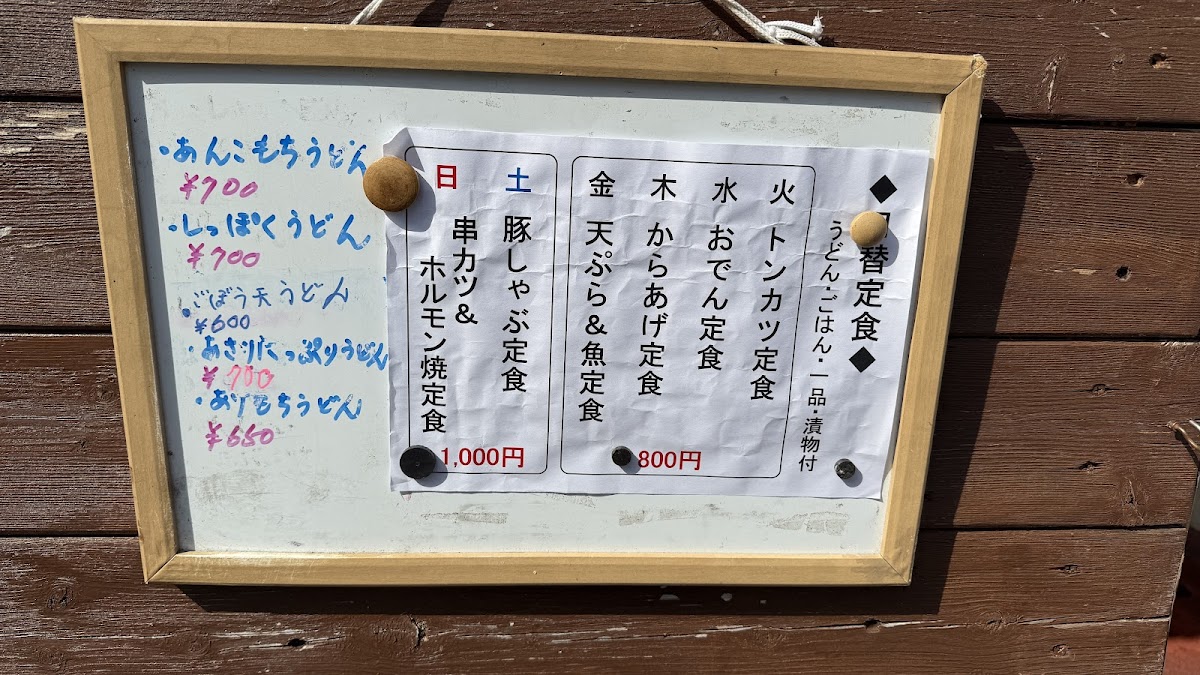 ・あんこもちうどん
¥700
・しっぽくうどん
¥700
・ごぼう天うどん
¥600
・あさりたっぷりうどん
¥700
・あげもちうどん
¥650
◆替定食◆
うどん・ごはん・一品・漬物付
火 トンカツ定食
水 おでん定食
木 からあげ定食
金 天ぷら&魚定食
800円
土 豚しゃぶ定食
日 串カツ&
ホルモン焼定食
1,000円